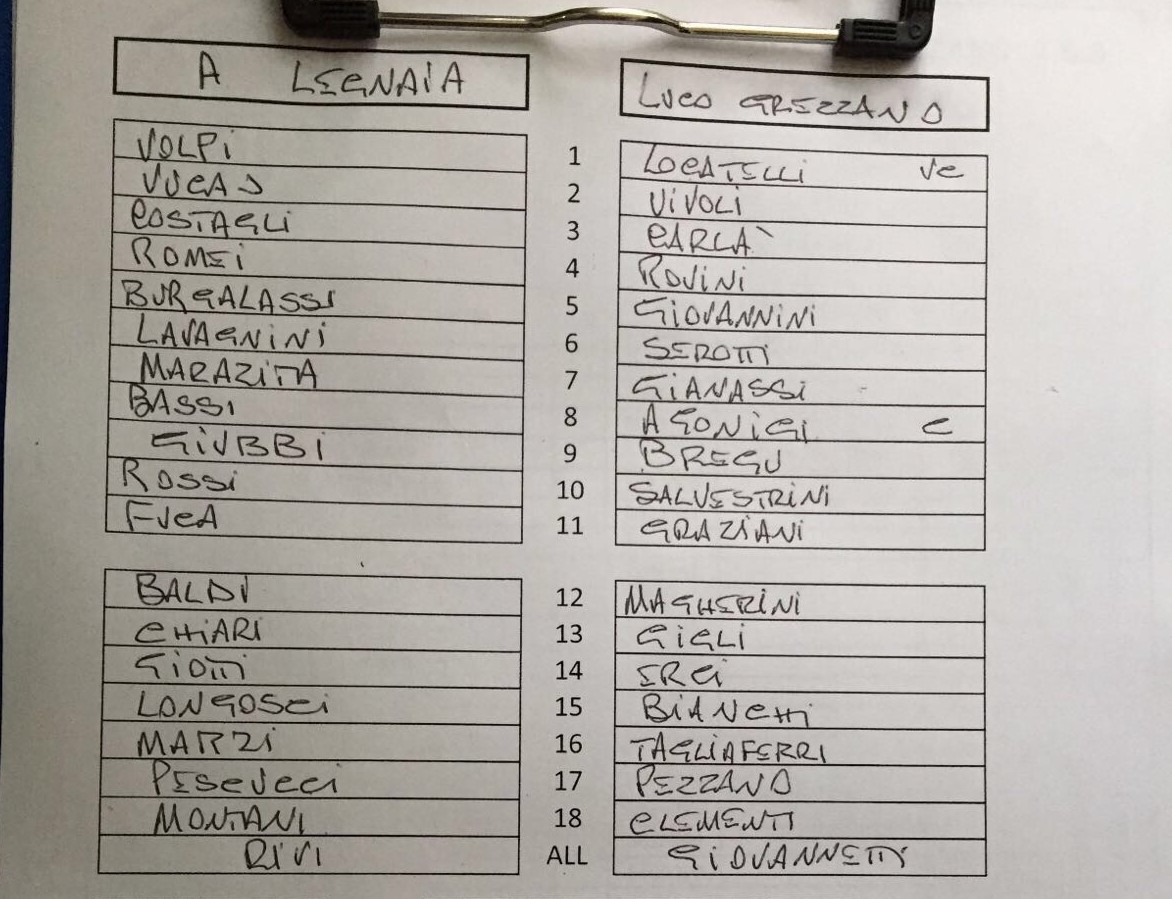 A LEGNAIA
LUCO GREZZANO
VOLPI 1 LOCATELLI VC
VUCAJ 2 VIVOLI
COSTAGLI 3 CARLA`
ROMEI 4 ROVINI
BURGALASSI 5 GIOVANNINI
LAVAGNINI 6 SEROTTI
MARAZITA 7 GIANASSI
BASSI 8 AGONIGI C
GIUBBI 9 BREGU
ROSSI 10 SALVESTRINI
FUCA 11 GRAZIANI
BALDI 12 MAGHERINI
CHIARI 13 GIGLI
GIOTTI 14 ERCI
LONGOSCI 15 BIANCHI
MARZI 16 TAGLIAFERRI
PESCUCCI 17 PEZZANO
MONTANI 18 CLEMENTI
RIVI ALL GIOVANNETTI